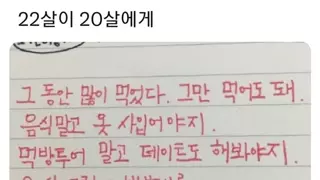 22살이 20살에게
그 동안 많이 먹었다. 그만 먹어도 돼.
음식말고 옷 사입어야지.
먹방투어 말고 데이트도 해봐야지.